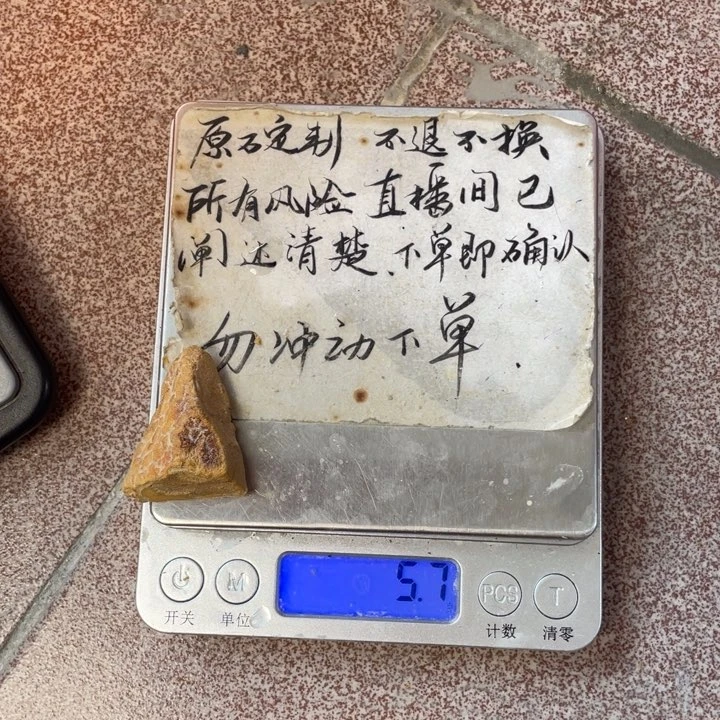 原石定制 不退不换
所有风险 直播间已
阐述清楚、下单即确认
勿冲动下单.
5.7
M
PCS
T
开关
单位
计数
清零